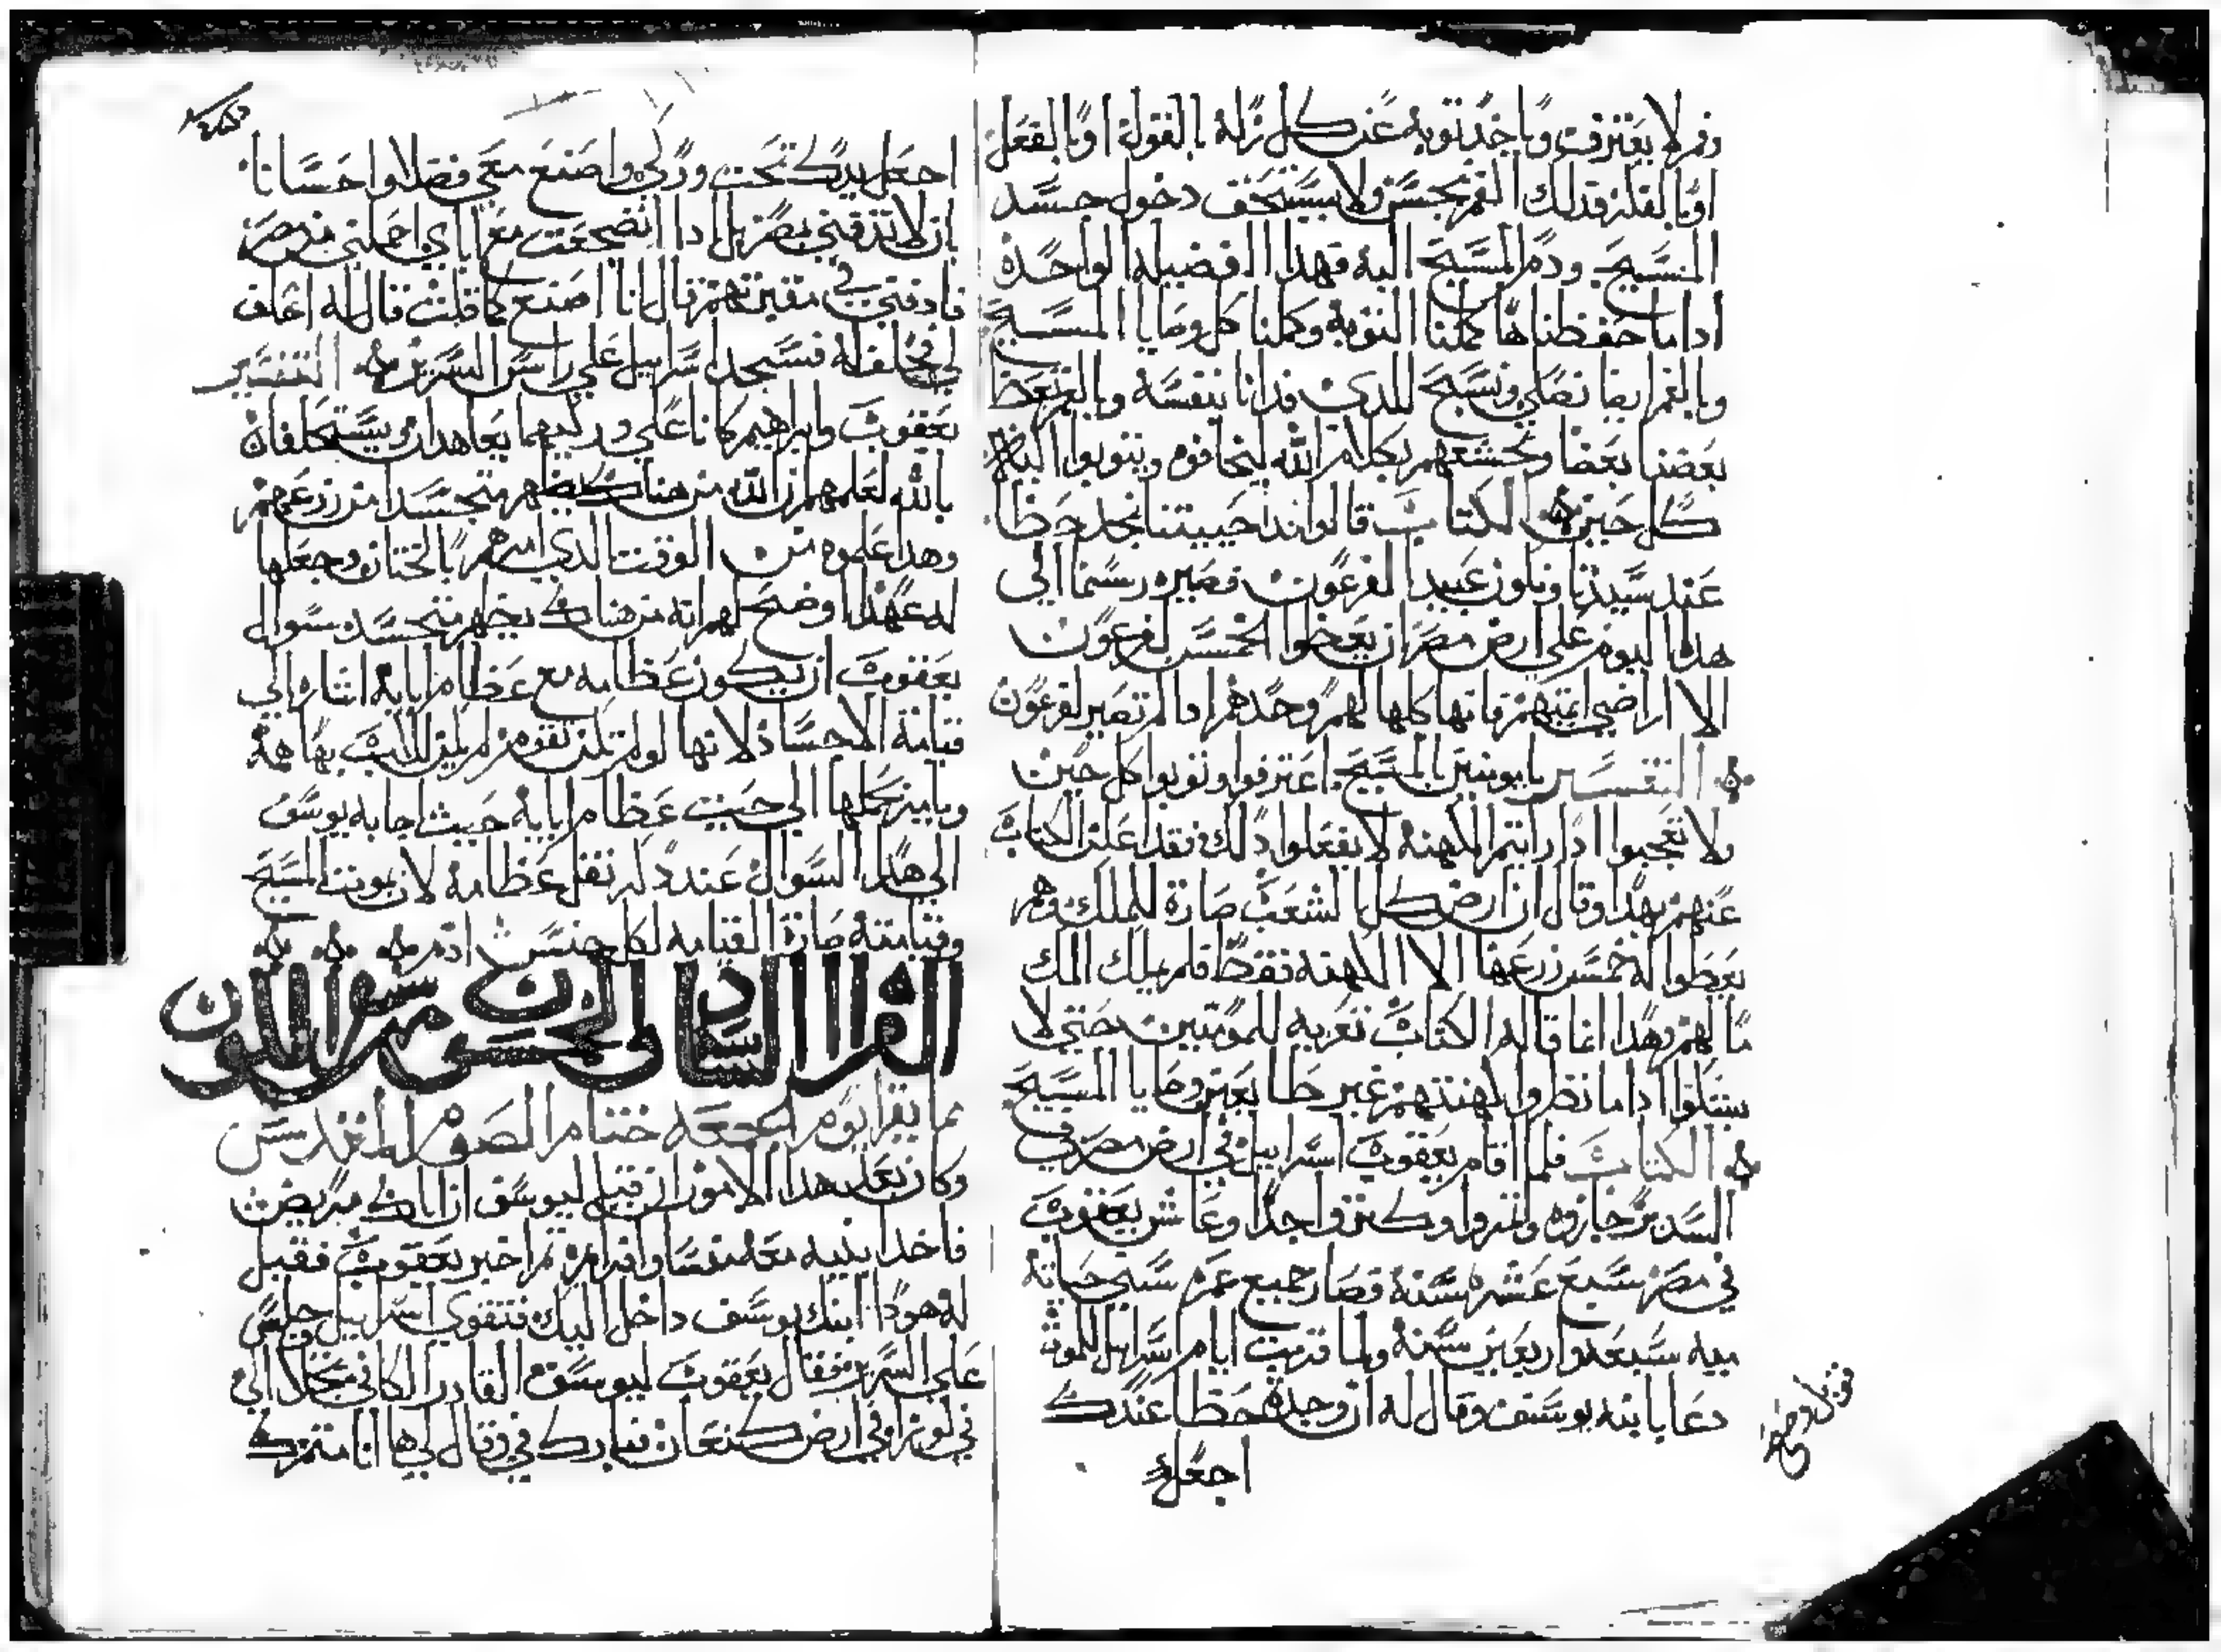 وفم لا يعترف وياخد توبه عن كل زله بالقول او بالفعل
او بالفكر فدلك الفم نجس ولا يستحق دخول جسد
المسيح ودم المسيح اليه فهدا الفضيله الواحدة
ادا ما حفظناها كملنا التوبة وكملنا كل وصايا المسيح
وبالفم ايضا نصلي ونسبح للدي فدانا بنفسه وبالفم نعظ
بعضنا بعضا ونخشعهم بكلام الله ليخافوه ويتوبوا اليه
كل حين الكتاب قالوا قد احييتنا نجد حظا
عند سيدنا ونكون عبيد الفرعون فصيره رسما الي
هدا اليوم علي ارض مصر ان يعطوا الخمس لفرعون
الا اراضي ايمتهم فانها كلها لهم وحدهم اد لم تصير لفرعون
التفسير يا مومنين بالمسيح اعترفوا وتوبوا كل حين
ولا تعجبوا ادا رايتم الكهنة لا يفعلوا دلك فقد اعلن الكتاب
عنهم بهدا وقال ان ارض كل الشعب صارة للملك وهم
يعطوا له خمس زرعها الا الكهنه فقط فلم يملك الملك
ما لهم وهدا انما قاله الكتاب تعزيه للمومنين حتي لا
يبتلوا ادا ما نظروا كهنتهم غير حظا بعين وصايا المسيح
الكتاب فلما اقام يعقوب اسراييل في ارض مصر في
السدير حازوه واتمروا وكثروا جدا وعاش يعقوب
في مصر سبع عشره سنة فصار جميع عمر سني حياته
ميه سبعه واربعين سنة ولما قربت ايام اسراييل للموت
دعا بابنه يوسف وقال له ان وجدة حظا عندك
اجعل
اجعل يدك تحت وركي واصنع معي فضلا واحسانا
بان لا تدفني بمصر بل ادا انضجعت مع اباي احملني من مصر
فادفني في مقبرتهم قال انا اصنع كما قلت قال له احلف
لي فحلف له فسجد اسراييل علي راس السرير التفسير
يعقوب وابراهيم كانا علي وركيهما يعاهدان يستحلفان
بالله لعلمهم ان الله من هناك يظهر متجسدا من زرعهم
وهدا علموه من الوقت الدي امرهم بالختان وجعلها
له عهدا اوضح لهم انه من هناك يظهر متجسد سوال
يعقوب ان يكون عظامه مع عظام ابايه اشاره الي
قيامة الاجساد لانها لو لم تكن تقوم لم يكن الاب بها همه
ويامر بحملها الي حيث عظام ابايه حيث اجابه يوسف
الي هدا السوال عند دلك نقل عظامه لان بموت المسيح
وقيامته صارة القيامه لكل جنس ادم
الفرا السادس والخمسون من سفر التكوين
مما يقرا يوم الجمعه ختام الصوم المقدس
وكان بعد هدا الامور ان قيل ليوسف ان اباك مريض
فاخد ابنيه معه منسا وافرام ثم اخبر يعقوب فقيل
له هودا ابنك يوسف داخل اليك فتقوي اسراييل وجلس
علي السرير فقال يعقوب ليوسف القادر الكافي تجلا لي
في لوز في ارض كنعان فبارك في وقال لي ها انا مثمرك